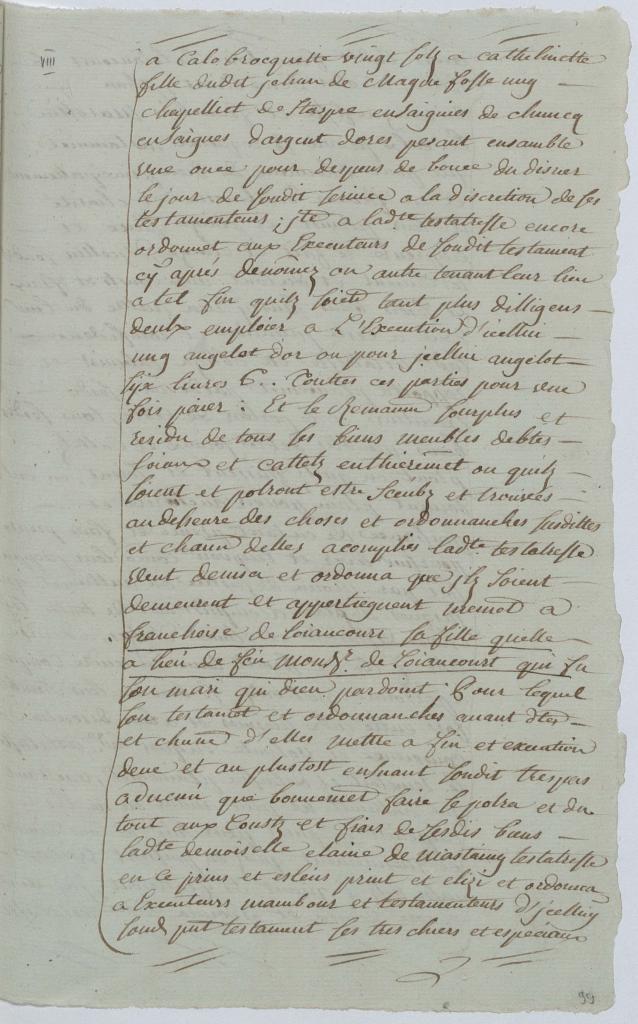 VIII
a Calo brocquette vingt solz a cathelinette
fille dudit jehan de Maque fosse ung
chapelliet de Jaspre ensaignies de chincq
ensaignes dargent dores pesant ensamble
une once pour despens de bouce du disner
le jour de sondit service a la discretion de ses
testamenteurs ; jte a ladte testatresse encore
ordonnet aux Executeurs de sondit testament
cy aprés denomez ou autre tenant leur lieu
a tel fin quilz soiēt tant plus dilligens
deulx emploier a L'Execution d'icelluy
ung angelot dor ou pour jcelluy angelot
six livres t.. Touttes ces parties pour une
fois paier : Et le Remanan sourplus et
residu de tous ses biens meubles debtes
joiaux et cattelz enthieremēt ou quilz
soient et polront estre sceubz et trouvées
au deseure des choses et ordonnanches susdittes
et chacun delles acomplies ladte testatresse
veut devisa et ordonna que jlz soient
demeurent et appertiegnent a
franchoise de loiancourt sa fille quelle
a heu de feu Monsr. de loiancourt qui fu
son mari qui dieu pardoint ; Pour lequel
son testamēt et ordonnanches avant dtes
et chune d'elles mettre a fin et execution
deue et au plustost ensuant sondit trespas
advenu que bonnemēt faire se polra et du
tout aux Coustz et frais de sesdis biens
ladte demoiselle claire de Mastaing testatresse
en ce prins et esleus print et elizi et ordonna
a Executeurs mambour et testamenteurs d'jcelluy
sond pnt testament ses tres chiers et especiaux
99